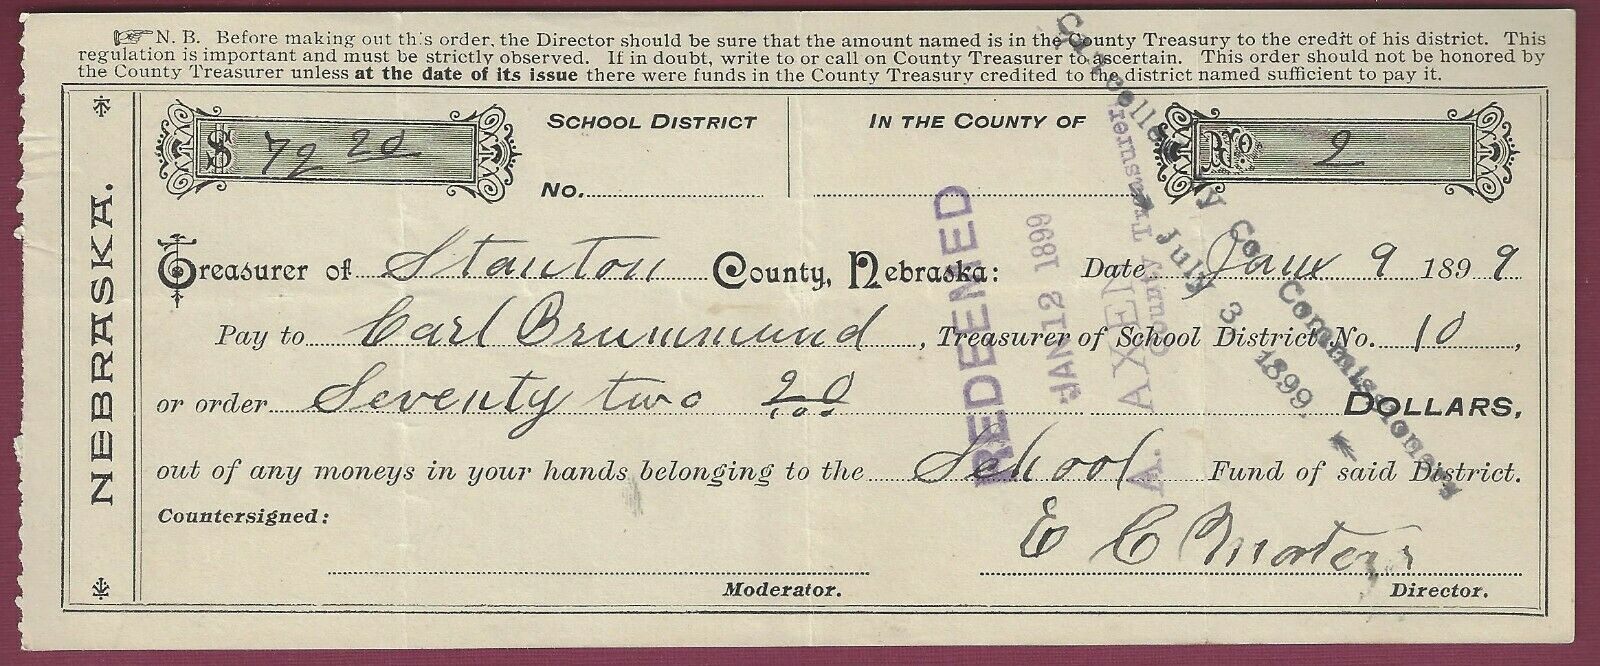 N. B. Before making out this order, the Director should be sure that the amount named is in the County Treasury to the credit of his district. This
regulation is important and must be strictly observed. If in doubt, write to or call on County Treasurer to ascertain. This order should not be honored by
the County Treasurer unless at the date of its issue there were funds in the County Treasury credited to the district named sufficient to pay it.
NEBRASKA.
$ 72 20
SCHOOL DISTRICT
No.
IN THE COUNTY OF
No. 2
Treasurer of Stanton County, Nebraska: Date Jany 9 1899
Pay to Carl Brummund, Treasurer of School District No. 10,
or order Seventy two 20/100 DOLLARS,
out of any moneys in your hands belonging to the School Fund of said District.
Countersigned:
E C
Moderator.
Director.
REDEEMED
JAN 12 1899
A. AXEN
County Treasurer.
Cancelled by Co. Commissioners
July 3 1899.